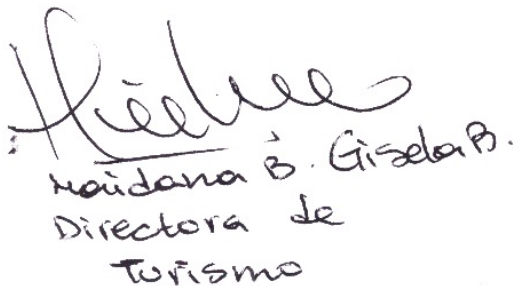 Maidana B. Gisela B.
Directora de
Turismo